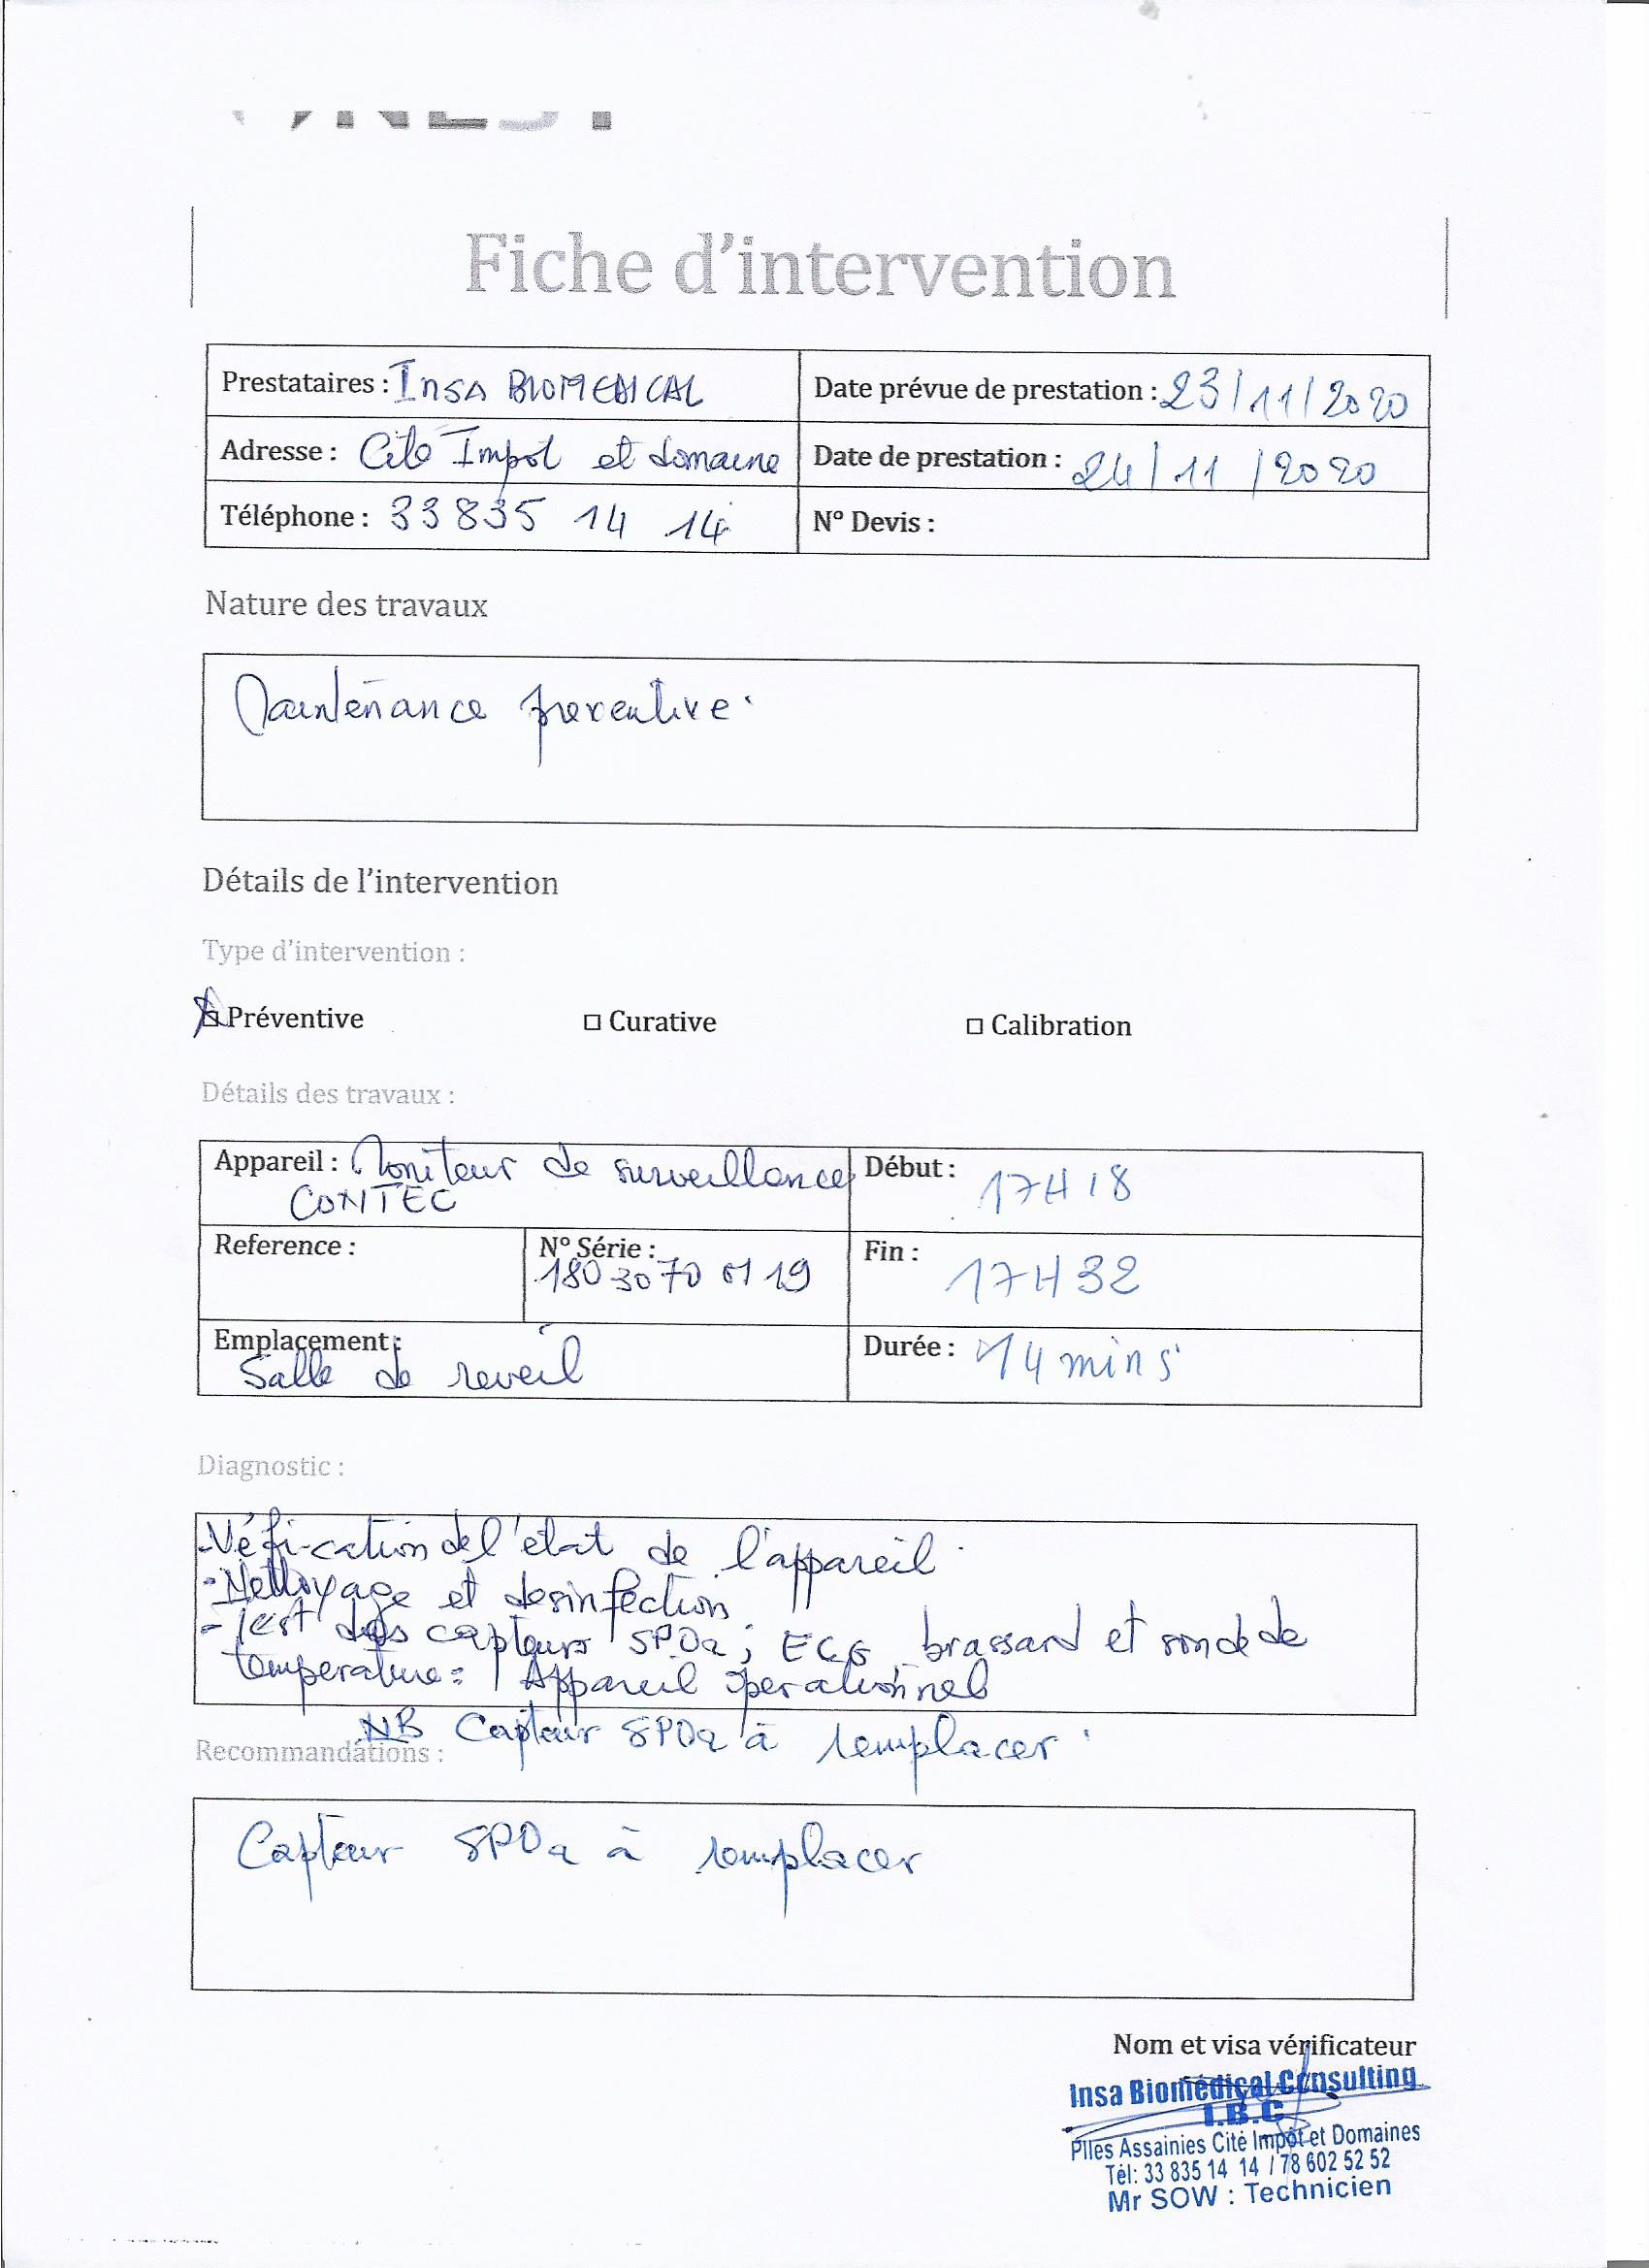 Fiche d'intervention
Prestataires : Insa BIOMEDICAL
Date prévue de prestation : 23/11/2020
Adresse : Cité Impot et domaine
Date de prestation : 24/11/2020
Téléphone : 33 835 14 14
N° Devis :
Nature des travaux
Maintenance preventive.
Détails de l'intervention
Type d'intervention :
Préventive
□ Curative
□ Calibration
Détails des travaux :
Appareil : Moniteur de surveillance
CONTEC
Début : 17H18
Reference :
N° Série :
180 30 70 01 19
Fin : 17H32
Emplacement :
Salle de reveil
Durée : 14 mins
Diagnostic :
- Véfi-cation de l'etat de l'appareil.
- Nettoyage et desinfection
- Test des capteurs SPO2; ECG brassard et sonde de
temperature = Appareil operationnel
NB Capteur SPO2 à remplacer.
Recommandations :
Capteur SPO2 à remplacer
Nom et visa vérificateur
Insa Biomédical Consulting
I.B.C
Plles Assainies Cité Impôt et Domaines
Tél: 33 835 14 14 / 78 602 52 52
Mr SOW : Technicien